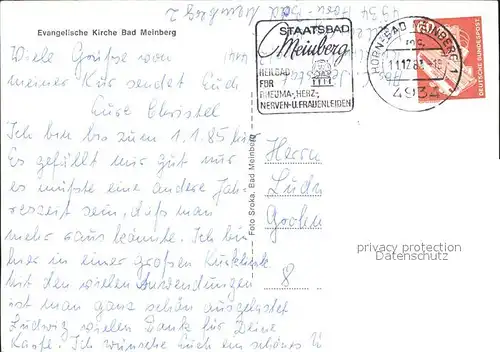 Evangelische Kirche Bad Meinberg
Viele Grüße von
meiner Kur sendet Euch
Eure Christel
Ich bin bis zum 1.1.85 hier
Es gefällt mir gut nur
es müßte eine andere Jah-
reszeit sein, daß man
mehr raus könnte. Ich bin
hier in einer großen Kurklinik
mit den vielen Anwendungen
ist man ganz schön ausgelastet
Ludwig vielen Dank für Deine
Karte. Ich wünsche Euch ein schönes
Foto Sroka, Bad Meinberg
4934 Horn-Bad Meinberg 2
STAATSBAD
Meinberg
HEILBAD
FÜR
RHEUMA-, HERZ-,
NERVEN-U.FRAUENLEIDEN
HORN-BAD MEINBERG 1
4934
DEUTSCHE BUNDESPOST
Herrn
8
privacy protection
Datenschutz